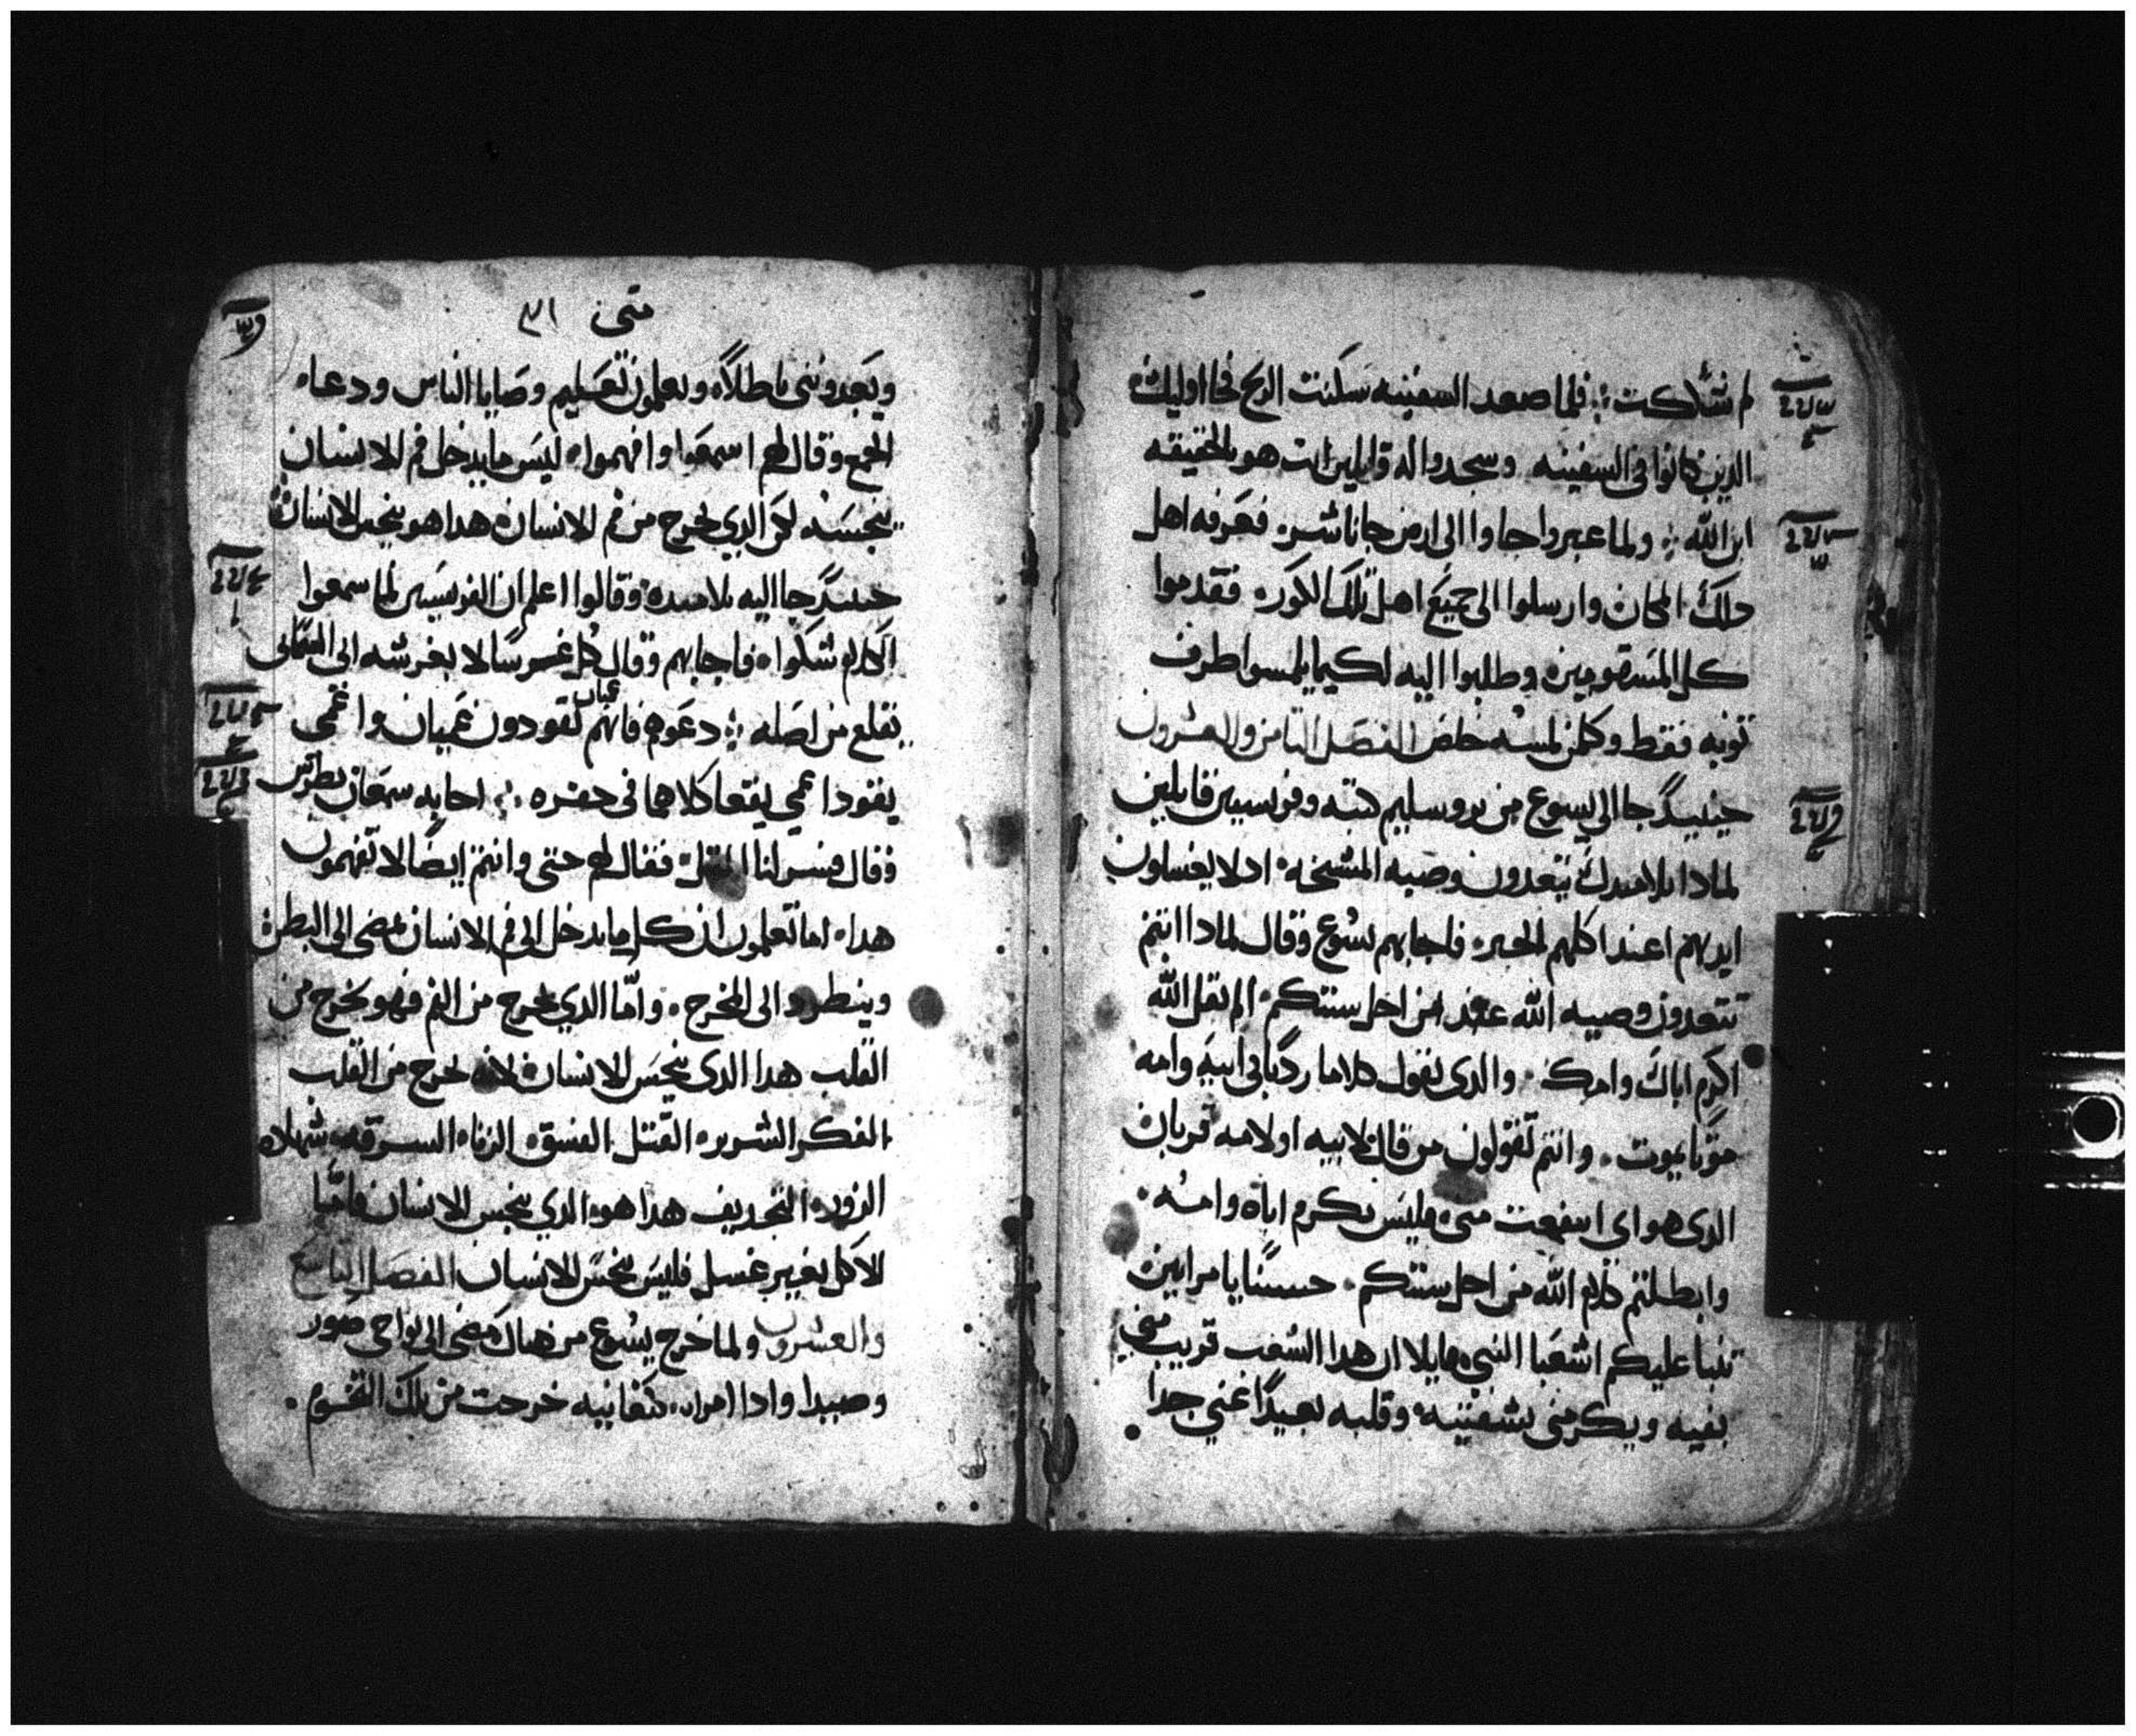 لم تشككت ؞ فلما صعد السفينه سكنت الريح فجا اوليك
الدين كانوا فى السفينه وسجدوا له قايلين انت هو بالحقيقه
ابن الله ؞ ولما عبروا جاوا الى ارض جاناشر فعرفه اهل
دلك المكان وارسلوا الى جميع اهل تلك الكوره فقدموا
كل المسقومين وطلبوا اليه لكيما يلمسوا طرف
توبه فقط وكلمن لمسه خلص الفصل التامن والعشرون
حينيدٍ جا الى يسوع من يروسليم كتبه وفريسيين قايلين
لمادا تلاميدك يتعدون وصيه المشيخه ادلا يغسلون
ايديهم اعند اكلهم الخبز فاجابهم يسوع وقال لمادا انتم
تتعدون وصيه الله من اجل سنتكم الم يقل الله
اكرم اباك وامك والدى يقول كلاما رديا فى ابيه وامه
موتا يموت وانتم تقولون من قال لابيه او لامه قربان
الدى هو اى انتفعت منى فليس يكرم اباه وامه
وابطلتم كلام الله من اجل سنتكم حسنًا يا مرايين
تنبا عليكم اشعيا النبى قايلا ان هدا الشعب قريب منى
بفيه ويكرمنى بشفتيه وقلبه بعيدًا عنى جدا
متى ٣١
ويعبدوننى باطلاً ويعلمون تعاليم وصايا الناس ودعا
الجمع وقال لهم اسمعوا وافهموا ليس ما يدخل فم الانسان
ينجسه لكن الدي يخرج من فم الانسان هدا هو ينجس الانسان
حينيدٍ جا اليه تلاميده وقالوا اعلم ان الفريسيين لما سمعوا
الكلام شكوا فاجابهم وقال كل غرس لا يغرسه ابى السمائى
يقلع من اصله ؞ دعوهم فانهم عميان يقودون عميان واعمى
يقود اعمي يقعا كلاهما فى حفره ؞ اجابه سمعان بطرس
وقال فسر لنا المتل فقال لهم حتى وانتم ايضًا لا تفهمون
هدا اما تعلمون ان كل ما يدخل الى فم الانسان يمضى الى البطن
وينطرد الى المخرج وامّا الدي يخرج من الفم فهو يخرج من
القلب هدا الدى ينجس الانسان لانه يخرج من القلب
الفكر الشرير القتل الفسق الزنا السرقه شهاده
الزور التجديف هدا هو الدي ينجس الانسان فامّا
الاكل بغير غسل فليس ينجس الانسان الفصل التاسع
والعشرون ولما خرج يسوع من هناك مضى الى نواحى صور
وصيدا وادا امراه كنعانيه خرجت من تلك التخوم